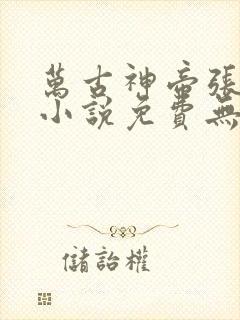 萬古神帝張
小說免費無
儲詒權